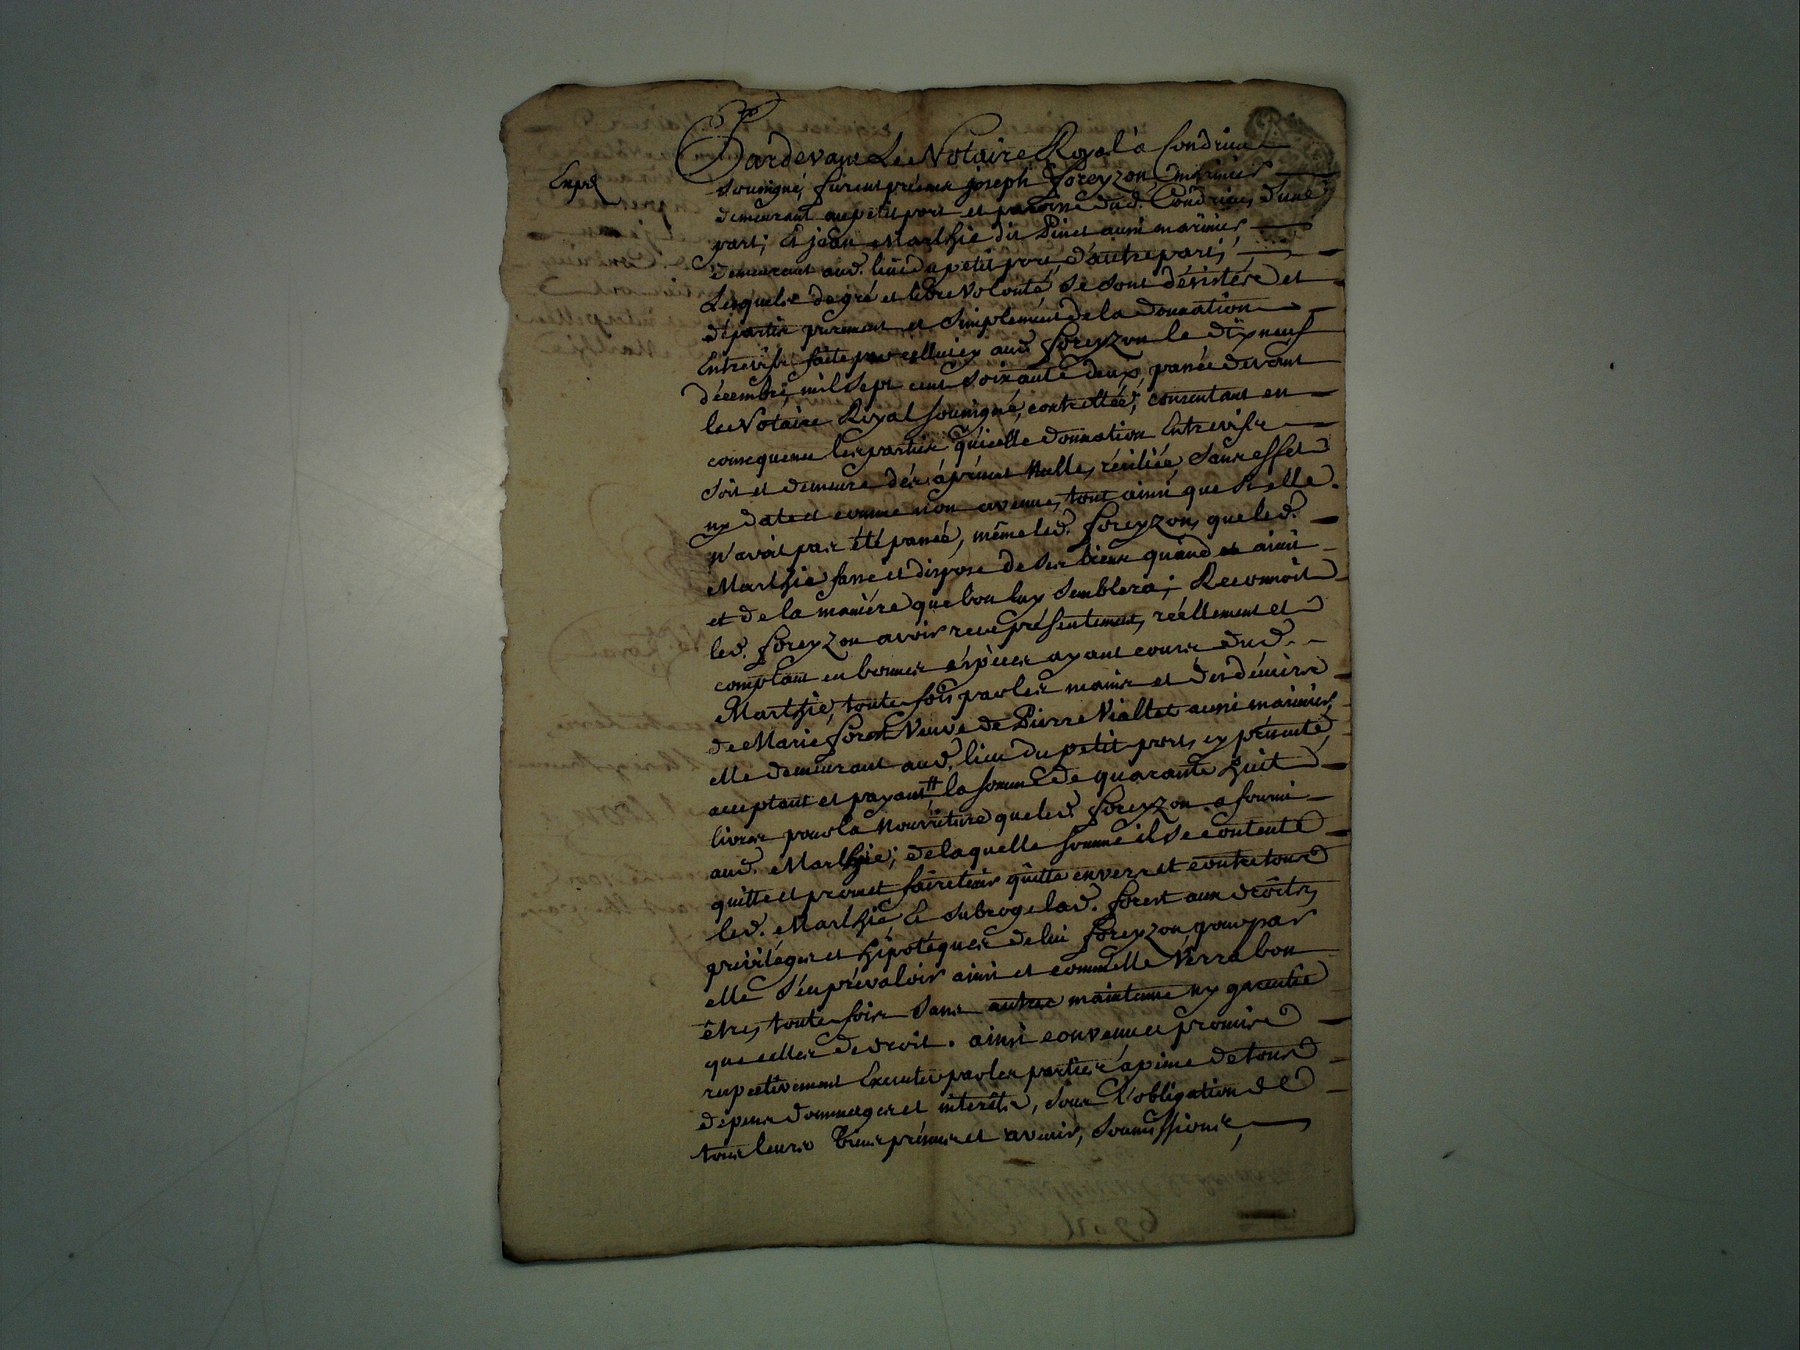 Exp.
Pardevant Le Notaire Royal à Condrieu
soussigné, furent présens joseph foreyzon marinier
demeurant au petit port et paroisse dud. Condrieu, d'une
part; Et jean Marthie dit Pinet aussi marinier
demeurant aud. lieu du petit port, d'autre part;
Lesquels de gré et libre volonté se sont désistés et
départis purement et simplement de la donnation
Entrevifs faite par celluicy aud. foreyzon le dixneuf
décembre mil sept cent soixante deux, passée devant
le Notaire Royal soussigné, controllée; consentant en
consequence les parties qu'icelle donnation Entrevifs
soit et demeure dès àprésent Nulle, résiliée, sans effet
ny date et comme non avenue, tout ainsi que Si elle
n'avoit pas été passée, même led. foreyzon, que led.
Marthie fasse et dispose de Ses biens quand et ainsi
et de la manière que bon luy Semblera; Reconnoit
led. foreyzon avoir reçu présentement, réellement et
comptant en bonnes éspèces ayant cours dud.
Marthie, toute fois par les mains et des déniers
de Marie forest Veuve de Pierre Viallet aussi marinier,
elle demeurant aud. lieu du petit port, cy présente,
acceptant et payant, la somme de quarante huit
livres pour la Nourriture que led. foreyzon a fourni
aud. Marthie; de laquelle somme il se contente
quitte et promet faire tenir quitte envers et contre tous
led. Marthie Et subroge lad. forest aux droits,
privilèges et hipotèques de lui foreyzon, pour par
elle s'en prévaloir ainsi et comm'elle Vérra bon
être, toute fois sans autre maintenue ny garentie
que celles de droit. ainsi convenu et promis
respectivement Executer par les parties à peine de tous
dépens dommages et interêts, sous L'obligation de
tous leurs Biens présens et avenir, soumissions,